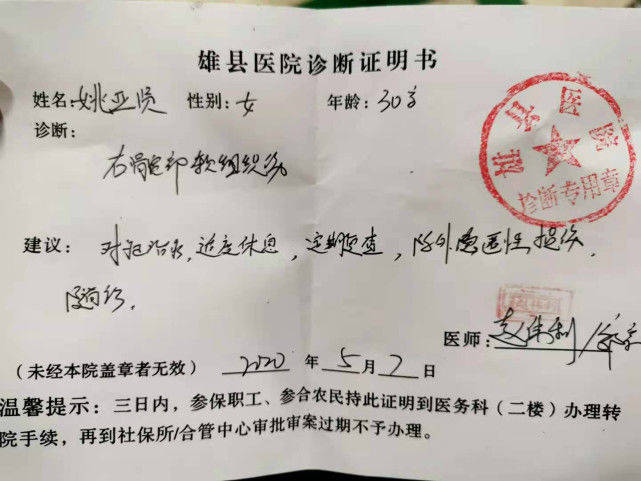 雄县医院诊断证明书
姓名:姚亚贤 性别:女 年龄:30岁
诊断:
右肩部软组织伤
建议: 对症治疗,适度休息,定期复查,除外隐匿性损伤,
随诊。
医师:赵伟利
(未经本院盖章者无效) 2020 年 5 月 7 日
温馨提示:三日内,参保职工、参合农民持此证明到医务科(二楼)办理转
院手续,再到社保所/合管中心审批审案过期不予办理。
雄县医院
诊断专用章